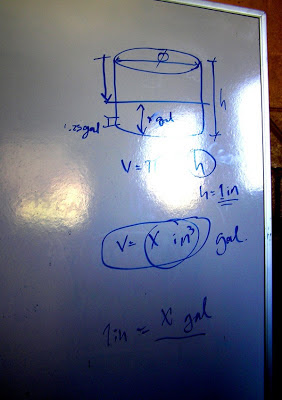 Ø
h
1.25gal
x gal
V = π h
h = 1in
V = X in³ gal.
1in = X gal